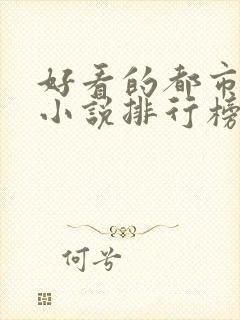 好看的都市
小说排行榜
何兮